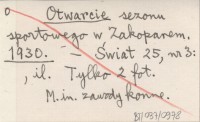 o Otwarcie sezonu
sportowego w Zakopanem.
1930. – Świat 25, nr 3:
, il. Tylko 2 fot.
M.in. zawody konne.
BJ/037/0978